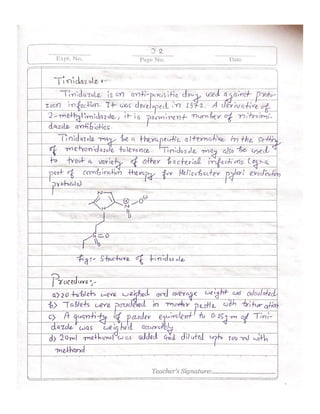 32
Expt. No.
Page No.
Date
Tinidazole :-
Tinidazole is an anti-parasitic drug used against proto-
zoan infection. It was developed in 1972. A derivative of
2-methylimidazole, it is prominent member of nitroimi-
dazole antibiotics.
Tinidazole may be a therapeutic alternative in the setting
of metronidazole tolerance. Tinidazole may also be used
to treat a variety of other bacterial infections (eg as
part of combination therapy for Helicobacter pylori eradication
protocols)
Fig:- Structure of tinidazole
Procedure:-
a) 20 tablets were weighed and average weight was calculated
b) Tablets were powdered in mortar pestle with trituration
c) A quantity of powder equivalent to 0.15gm of Tini-
dazole was weighed accurately
d) 20ml methanol was added and diluted upto 100 ml with
methanol
Teacher's Signature: